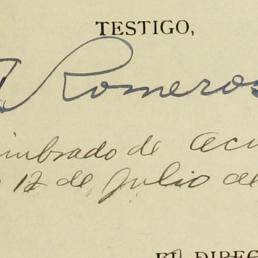 TESTIGO,
Romeros
timbrado de acu
12 de Julio de
EL DIREC